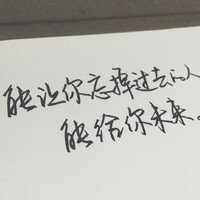 能让你忘掉过去的人
能给你未来。